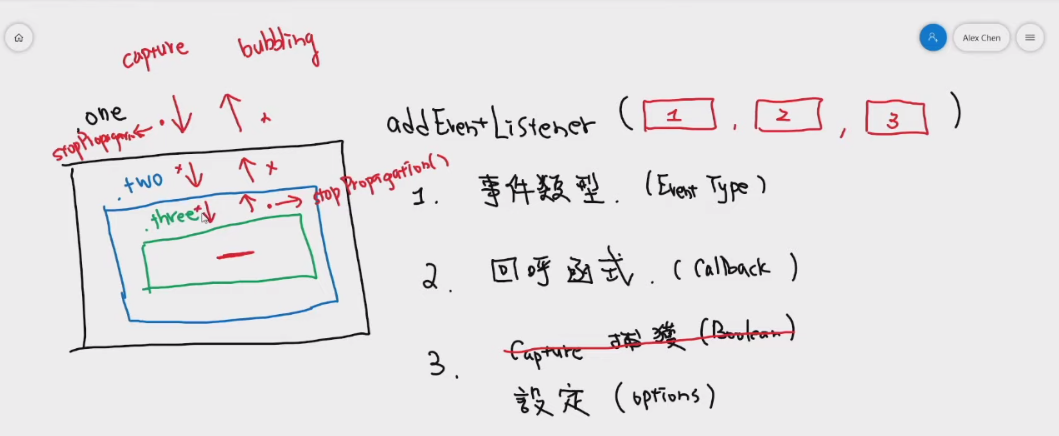 Alex Chen
capture
bubbling
.one
stopPropagation
.two
stopPropagation()
.three
addEventListener ( 1 , 2 , 3 )
1. 事件類型. (Event Type)
2. 回呼函式. (Callback)
3. Capture 捕獲 (Boolean)
設定 (options)